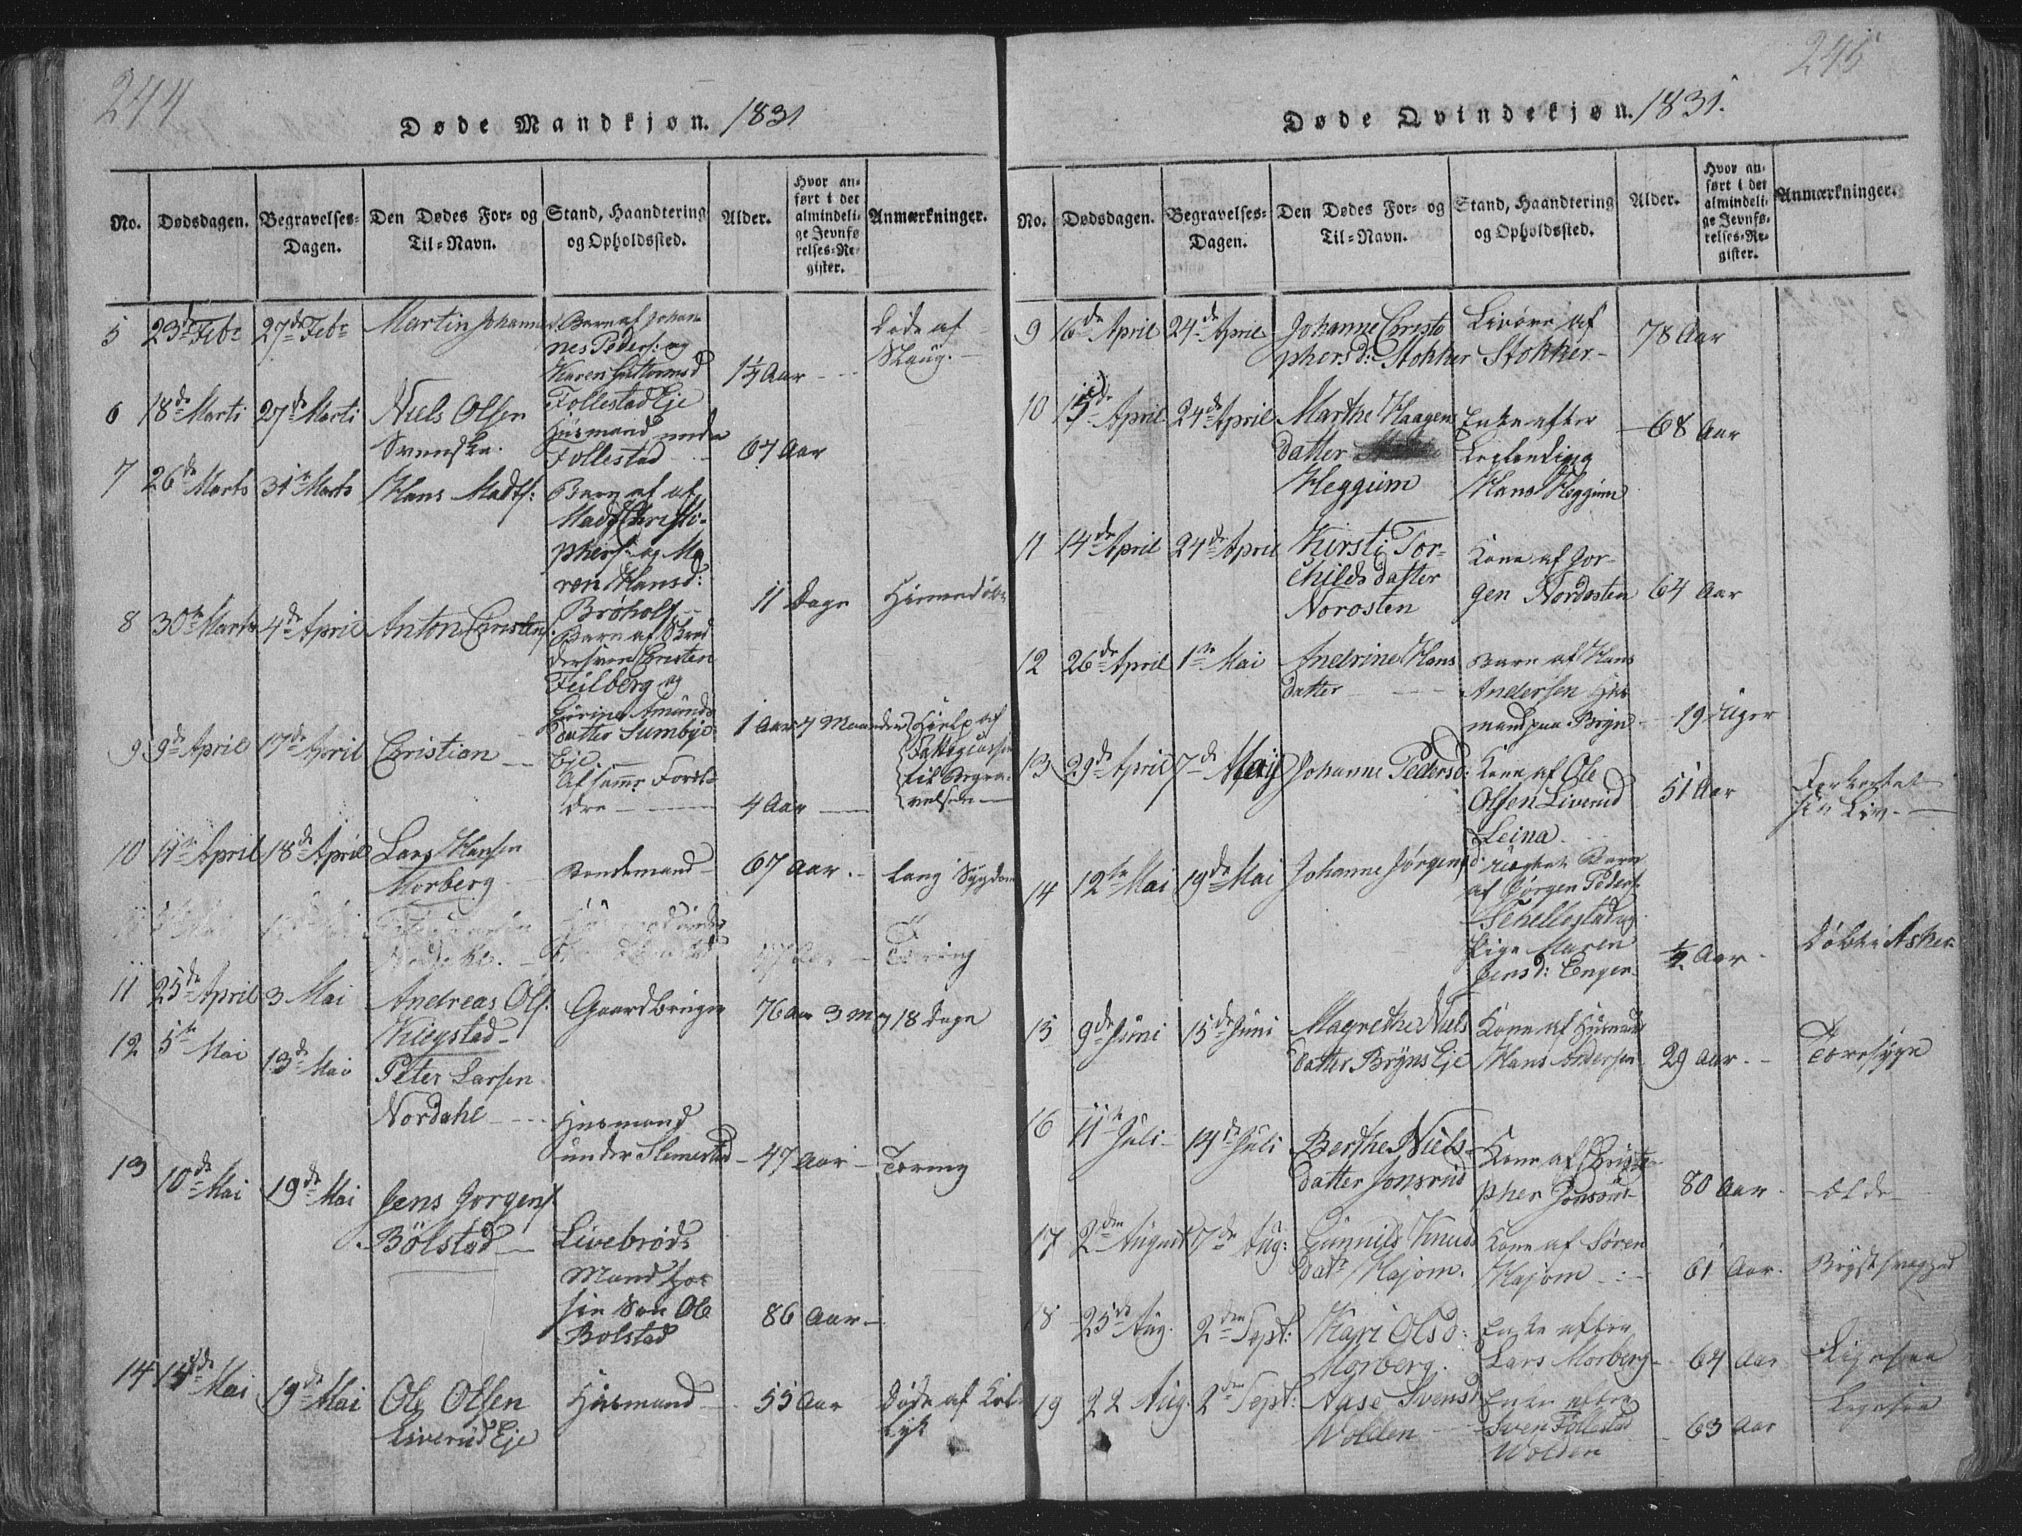 244
Døde Mandkjøn. 1831
No.
Dødsdagen.
Begravelses-
Dagen.
Den Dødes For- og
Til-Navn.
Stand, Haandtering
og Opholdssted.
Alder.
Hvor an-
ført i det
almindeli-
ge Jevnfø-
relses-Re-
gister.
Anmærkninger.
5 23de Febr 27de Febr Martin Johannes Barn af Johan-
nes Peders: og
Karen Guttormsd
Follestad Eje
1¼ Aar
Døde af
6 18de Marti 27de Marti Niels Olsen
Svenske.
Huusmand under
Follestad
67 Aar
7 26de Marts 31te Marts Hans Madts:
Barn af af
Mads Christo-
phers: og Ma
ren Hansd:
Brøholf
11 Dage Hiemmedøbt
8 30te Marts 4de April Anton Christens:
Barn af Skred
dersven Christen
Feilberg og
Gurine Amunds
datter Sumbye
Eje
1 Aar 7 Maaneder
Hielp af
Fattigcassen
til Begra-
velsen
9 9de April 17de April Christian
Af samme Foræl-
dre
4 Aar
10 11te April 18de April Lars Hansen
Morberg
Bondemand 67 Aar. Lang Sygdom
Tæring
11 25de April 3 Mai Andreas Ols:
Kiegstad
Gaardbruger 76 Aar 3 M 18 Dage
12 5te Mai 13de Mai Peter Larsen
Nordahl
Huusmand
under Slemestad 47 Aar Tæring
13 10de Mai 19de Mai Jens Jorgens:
Bölstad
Livebröds
Mand hos
sin Søn Ole
Bolstad
86 Aar
14 14de Mai 19de Mai Ole Olsen
Liverud Eje
Huusmand 55 Aar Døde af
245
Døde Qvindekjøn. 1831.
No.
Dødsdagen.
Begravelses-
Dagen.
Den Dødes For- og
Til-Navn.
Stand, Haandtering
og Opholdssted.
Alder.
Hvor an-
ført i det
almindeli-
ge Jevnfø-
relses-Re-
gister.
Anmærkninger.
9 16de April 24de April Johanne Christo
phersd: Stokker
af
Stokker
78 Aar
10 15de April 24de April Marthe Haagens
datter
Heggum
Enke efter
Hans Heggum
68 Aar
11 14de April 24de April Kirsti Tor-
childsdatter
Norosten
Kone af Jor-
gen Nordosten 64 Aar
12 26de April 1te Mai Andrine Hans
datter
Barn af Hans
Andersen Huus
mand paa Bryn
19 Uger
13 29de April 7de Maij Johanne Pedersd:
Kone af Ole
Olsen Liverud
Leina
51 Aar
Forkortet
sin Liv.
14 12te Mai 19de Mai Johanne Jørgensd:
Uægte Barn
af Jørgen Peders:
Schellestad og
Pige Maren
Jensd: Engen
½ Aar Döbt i Asker
15 9de Juni 15de Juni Magrethe Niels
datter Bryns Eje
Kone af Huusmand
Hans Andersen 29 Aar. Tæresyge
16 11te Juli 19de Juli Berthe Niels-
datter Jonsrud
Kone af Christo
pher Jonsrud 80 Aar. Ælde
17 2den August 7de Aug: Gunnild Knuds
datr Hajom.
Kone af Søren
Hajom 61 Aar. Brystsvaghed
18 25de Aug. 2den Sept: Kari Olsd:
Morberg.
Enke efter
Lars Morberg 64 Aar
19 22 Aug. 2den Sept: Aase Svensd
Wolden
Enke efter
Sven Follestad
Wolden
63 Aar